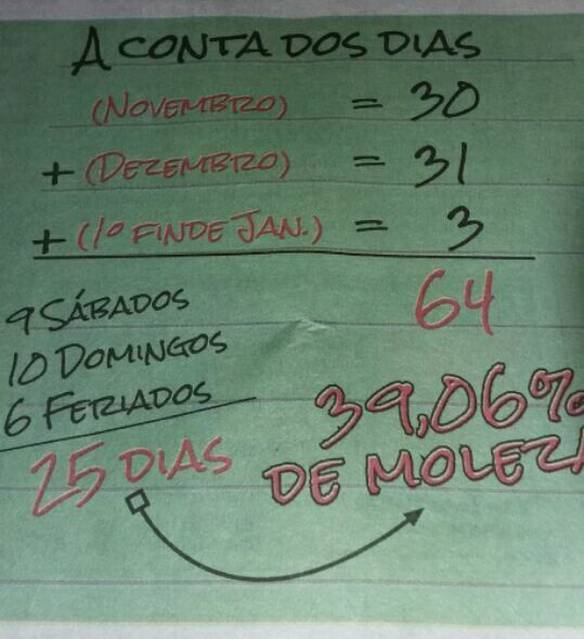 A CONTA DOS DIAS
(NOVEMBRO) = 30
+ (DEZEMBRO) = 31
+ (1º FINDE JAN.) = 3
64
9 SÁBADOS
10 DOMINGOS
6 FERIADOS
25 DIAS
39,06%
DE MOLEZA